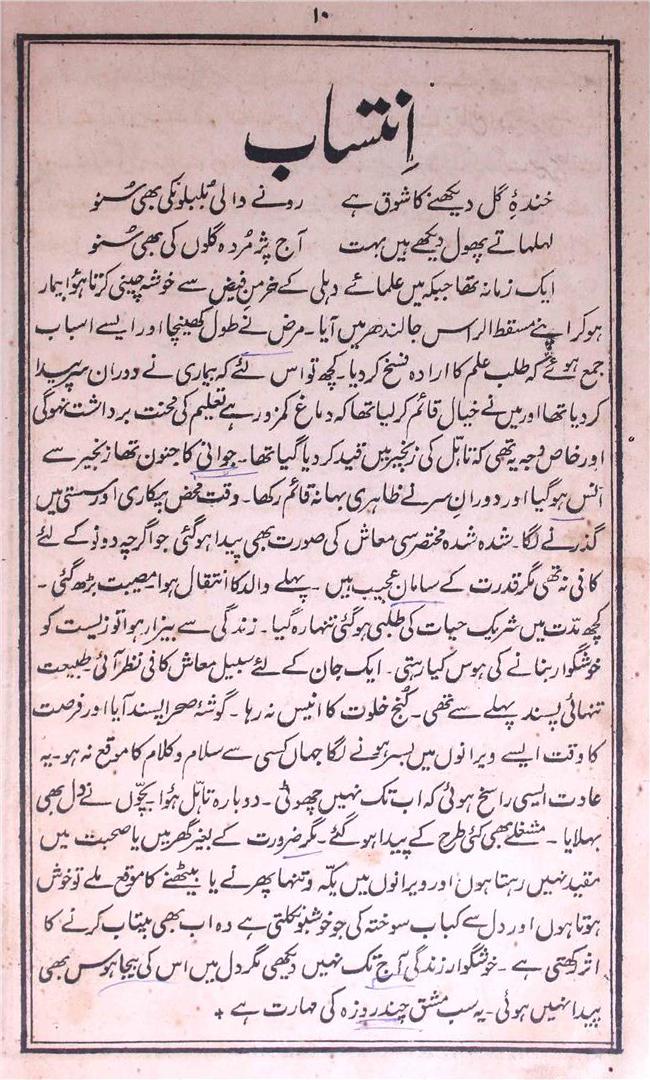 ۱۰
اِنتساب
خندۂ گل دیکھنے کا شوق ہے رونے والی بلبلونکی بھی سُنو
لہلہاتے پھول دیکھے ہیں بہت آج پژمُردہ گلوں کی بھی سُنو
ایک زمانہ تھا جبکہ میں علمائے دہلی کے خرمن فیض سے خوشہ چینی کرتا ہوُا بیمار
ہوکر اپنے مسقط الراس جالندھر میں آیا۔ مرض نے طول کھینچا اور ایسے اسباب
جمع ہوئے کہ طلب علم کا ارادہ فسخ کر دیا۔ کچھ تو اس لئے کہ بیماری نے دوران سر پیدا
کر دیا تھا اور میں نے خیال قائم کر لیا تھا کہ دماغ کمزور ہے تعلیم کی محنت برداشت نہوگی
اور خاص وجہ یہ تھی کہ تاہّل کی زنجیر میں قید کر دیا گیا تھا۔ جوانی کا جنون تھا زنجیر سے
اُنس ہو گیا اور دورانِ سر نے ظاہری بہانہ قائم رکھا۔ وقت محض بیکاری اور سستی میں
گذرنے لگا۔ شدہ شدہ مختصر سی معاش کی صورت بھی پیدا ہو گئی جو اگرچہ دونو کے لئے
کافی نہ تھی مگر قدرت کے سامان عجیب ہیں ۔ پہلے والد کا انتقال ہوا۔ مصیبت بڑھ گئی ۔
کچھ مدّت میں شریک حیات کی طلبی ہو گئی تنہا رہ گیا۔ زندگی سے بیزار ہوا تو زیست کو
خوشگوار بنانے کی ہوس کیا رہتی۔ ایک جان کے لئے سبیل معاش کافی نظر آئی۔ طبیعت
تنہائی پسند پہلے سے تھی۔ کُنج خلوت کا انیس نہ رہا ۔ گوشۂ صحرا پسند آیا اور فرصت
کا وقت ایسے ویرانوں میں بسر ہونے لگا جہاں کسی سے سلام و کلام کا موقع نہ ہو۔ یہ
عادت ایسی راسخ ہوئی کہ اب تک نہیں چھوٹی ۔ دوبارہ تاہّل ہوُا بچّوں نے دل بھی
بہلایا ۔ مشغلے بھی کئی طرح کے پیدا ہو گئے ۔ مگر ضرورت کے بغیر گھر میں یا صحبت میں
مقید نہیں رہتا ہوں اور ویرانوں میں یکّہ و تنہا پھرنے یا بیٹھنے کا موقع ملے تو خوش
ہوتا ہوں اور دل سے کباب سوختہ کی جو خوشبو نکلتی ہے وہ اب بھی بیتاب کرنے کا
اثر رکھتی ہے ۔ خوشگوار زندگی آج تک نہیں دیکھی مگر دل میں اس کی بیجا ہوس بھی
پیدا نہیں ہوئی ۔ یہ سب مشق چند روزہ کی مہارت ہے ٭